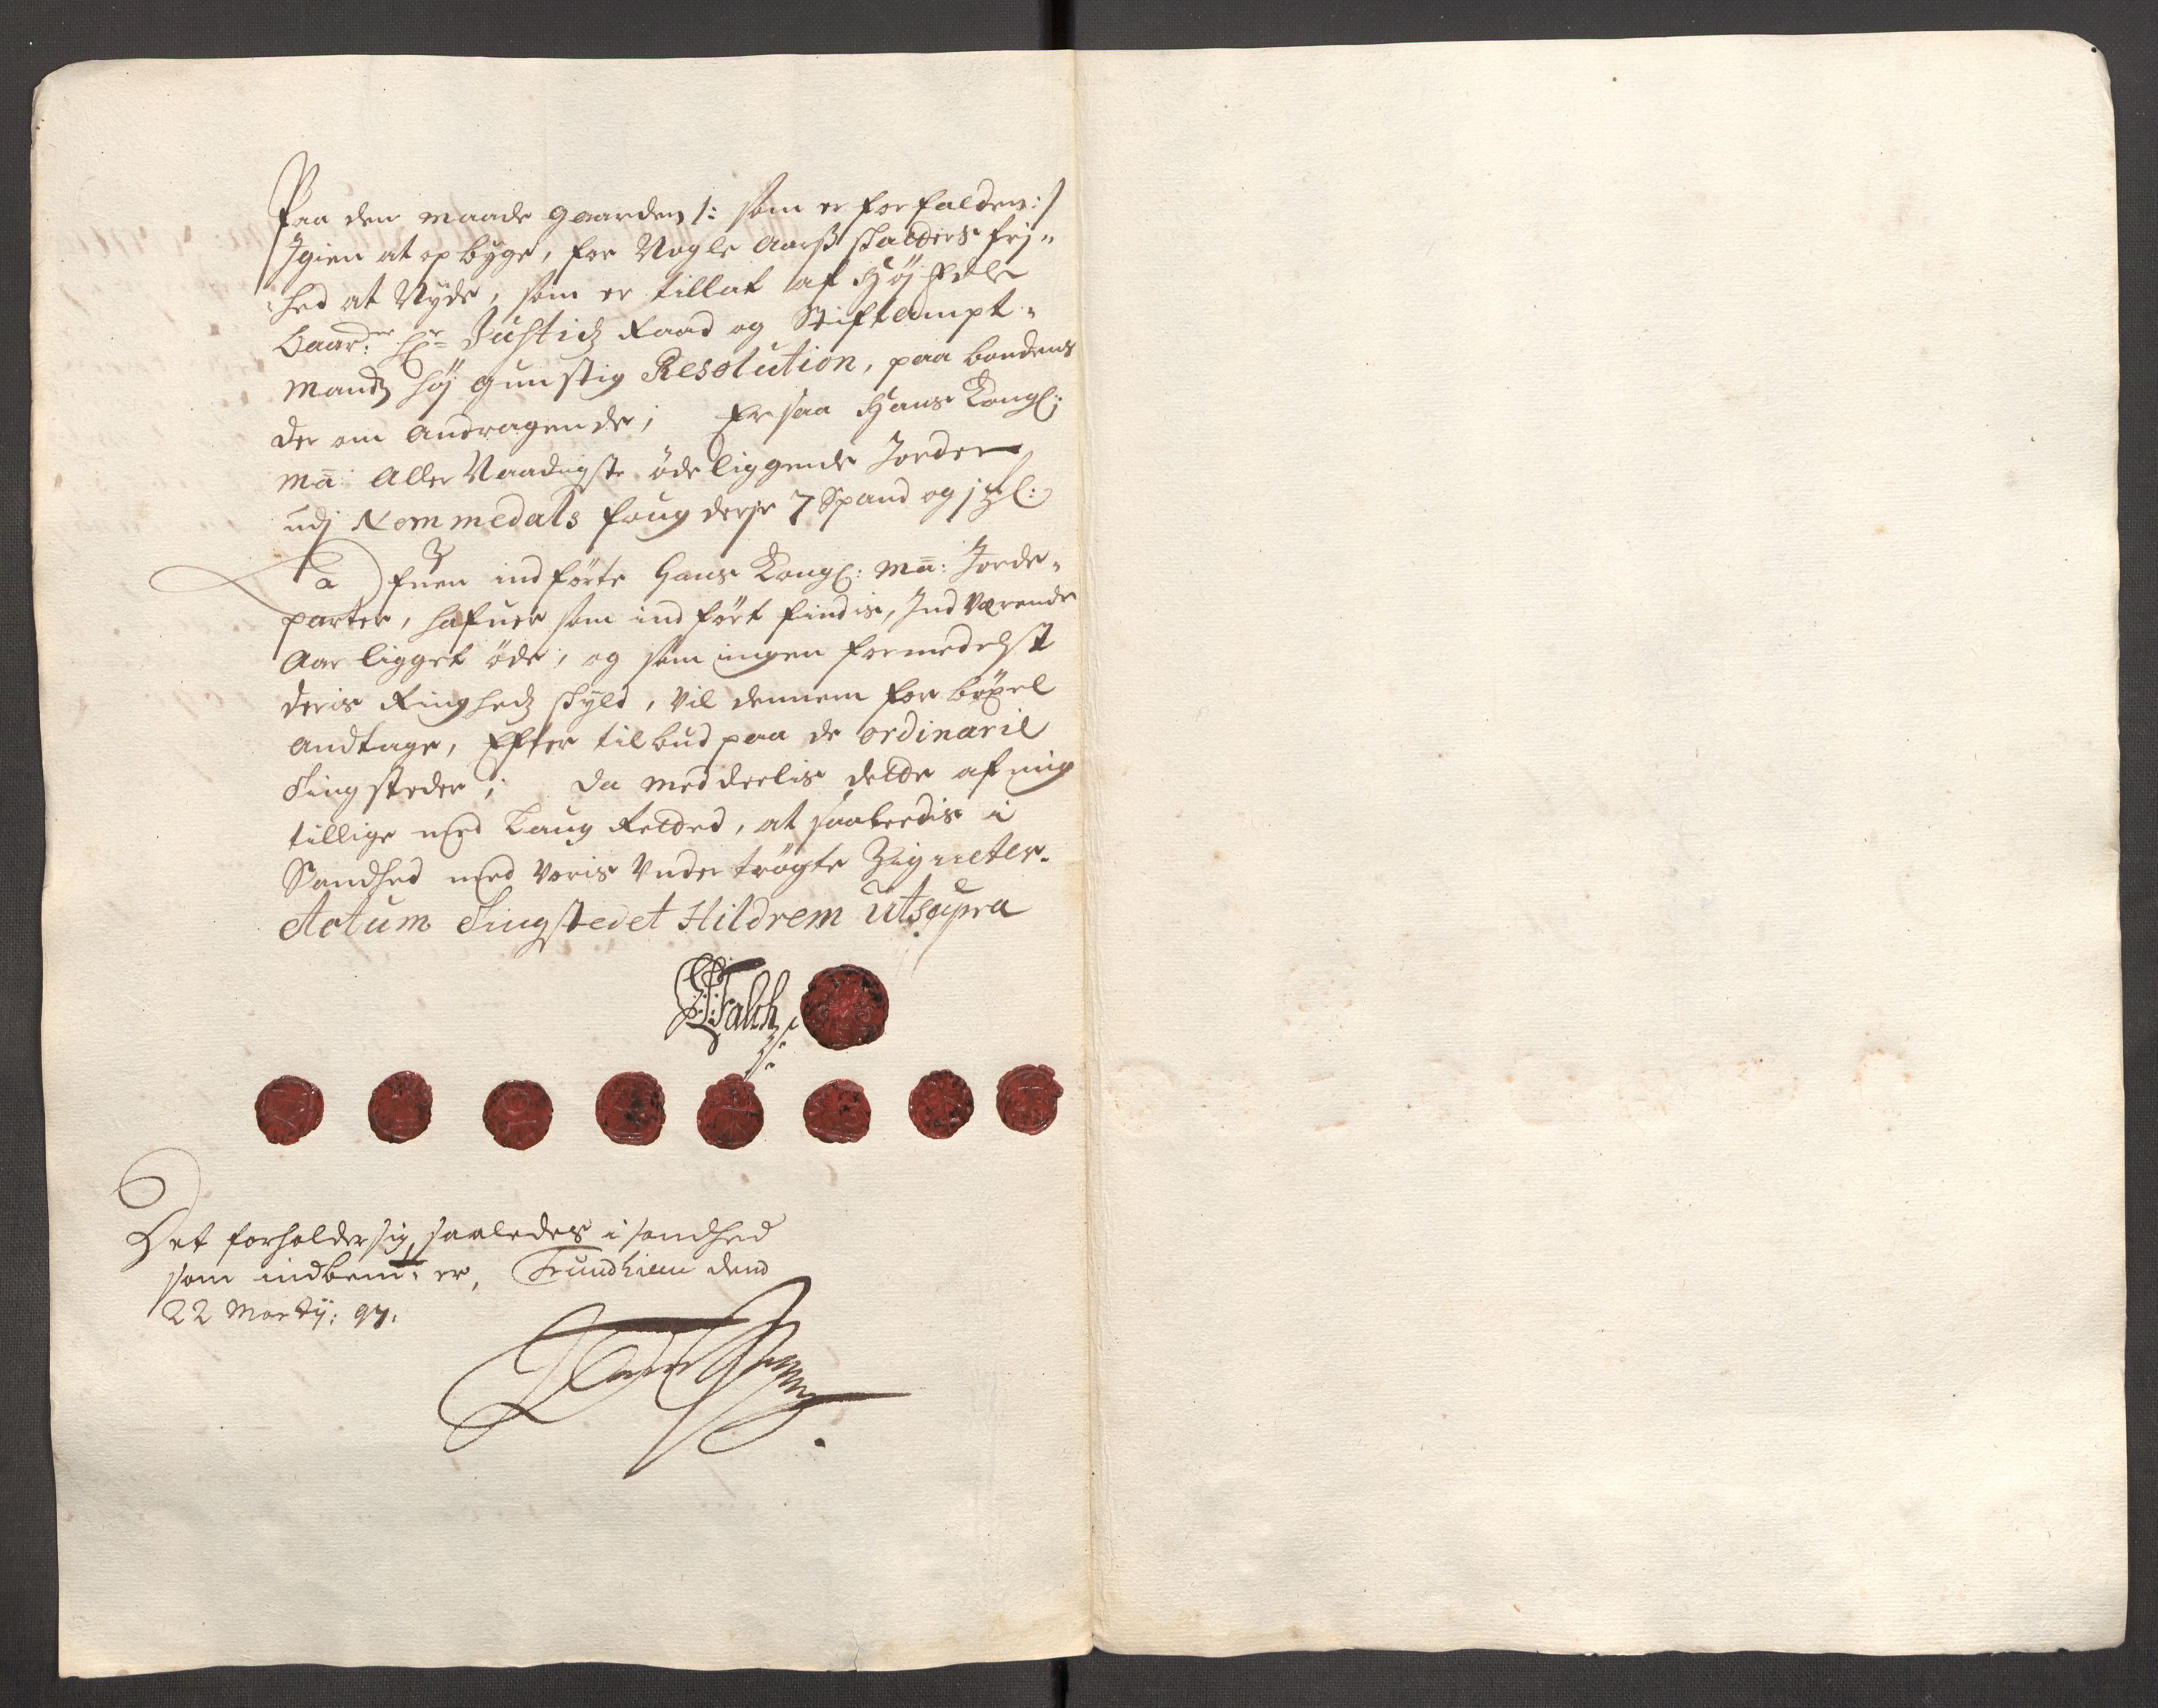 Paa den maade gaarden /: som er forfalden :/
Igien at opbyge, for Nogle Aarß skatters frj-
hed at Nyde, som er tillat af Höj Edle
Baar: Hr Justidz Raad og Stiftampt-
mandz höj gunstig Resolution, paa bondens
der om Andragende; Er saa Hans Kongl:
Ma: Aller Naadigste öde liggende Jorder
udj Nommedals fougderje 7 Spand og
fuen indförte Hans Kongl: Ma: Jorde-
parter, hafuer som indfört findis, Indværende
Aar ligget öde, og som ingen formedelst
deris Ringhedz skyld, vil dennem for böxel
Andtage, Efter tilbud paa de ordinarie
Tingsteder; Da meddeelis dette af mig
tillige med Laug Retted, at saaleedis i
Sandhed med voris under trögte Zigneter.
Actum Tingstedet Hildrem Utsupra
Falch
Det forholder sig saaledes i sandhed
som indbem: er, Trundhiem dend
22 Martij: 97.